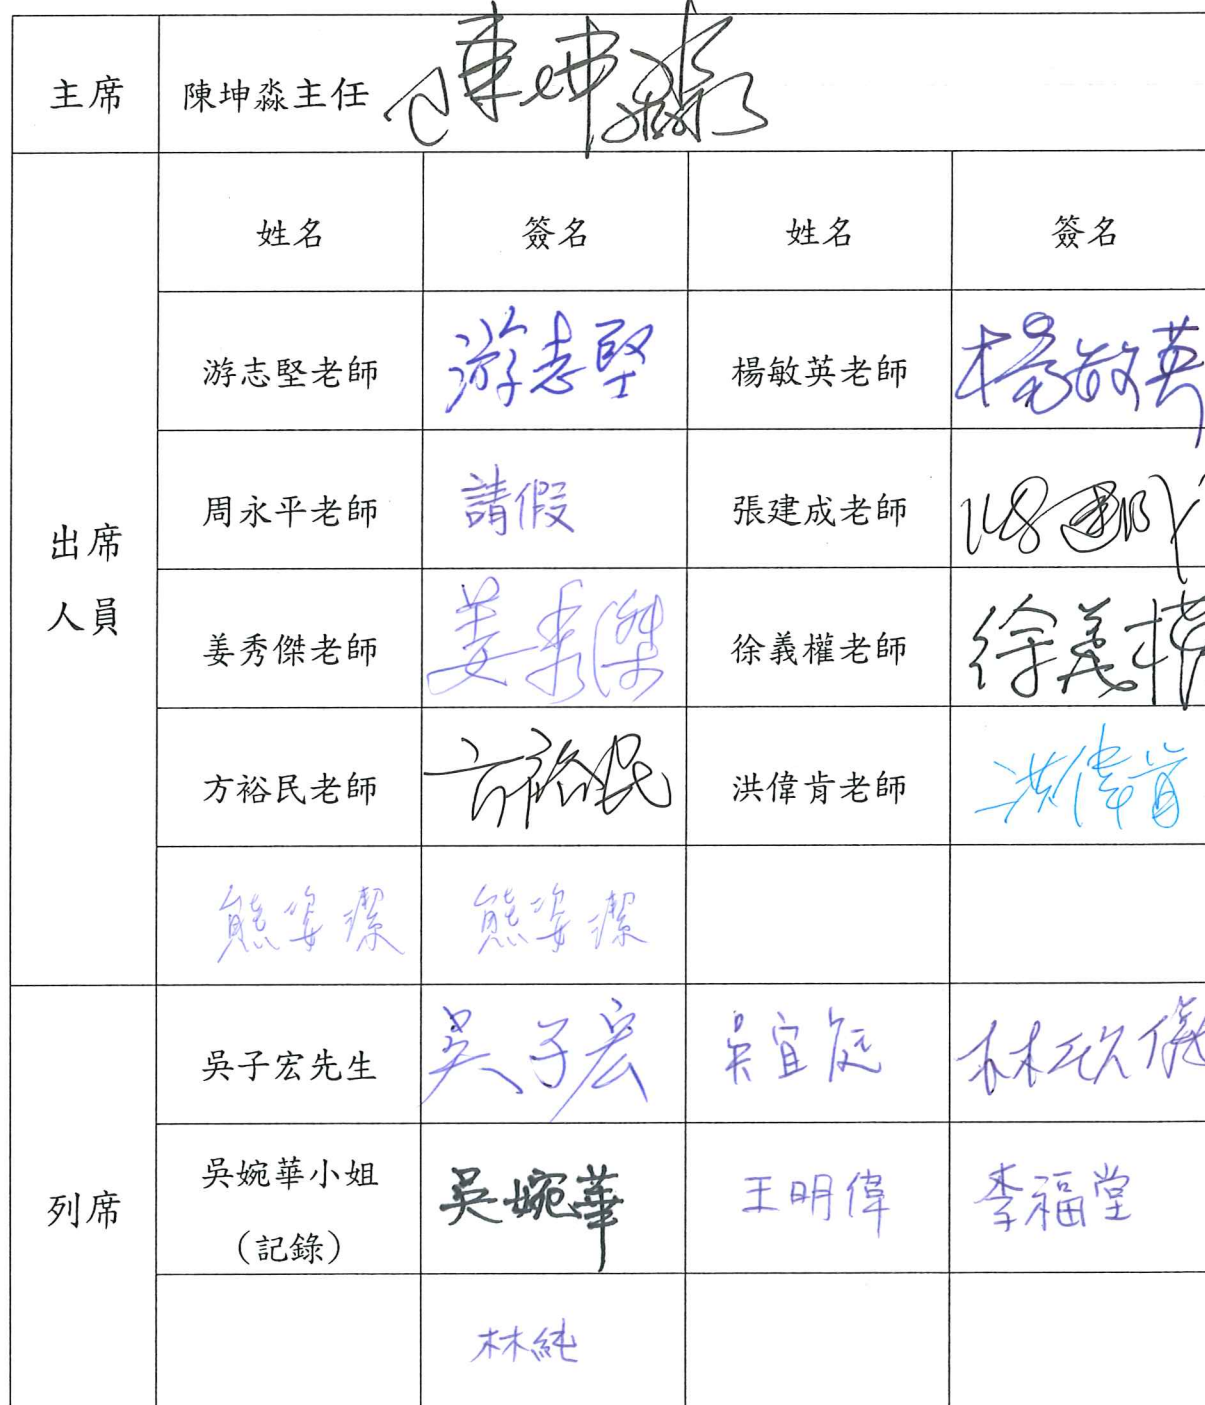 主席 陳坤淼主任 陳坤淼
姓名 簽名 姓名 簽名
游志堅老師 游志堅 楊敏英老師 楊敏英
出席人員
周永平老師 請假 張建成老師 張建成
姜秀傑老師 姜秀傑 徐義權老師 徐義權
方裕民老師 方裕民 洪偉肯老師 洪偉肯
熊姿潔 熊姿潔
吳子宏先生 吳子宏 吳宜庭 林欣儀
列席
吳婉華小姐
(記錄) 吳婉華 王明偉 李福堂
林純